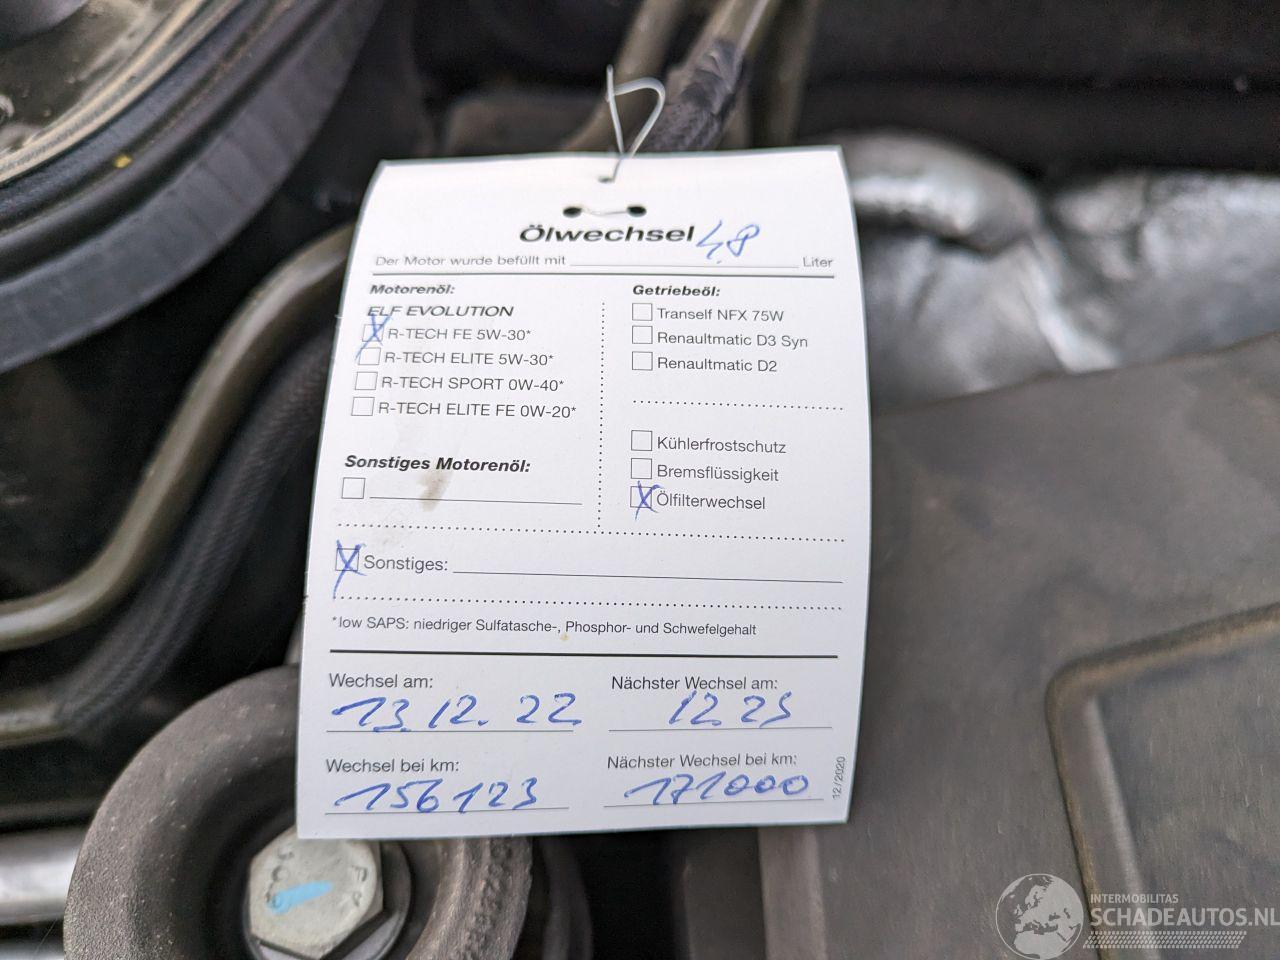 Ölwechsel
4,8
Der Motor wurde befüllt mit Liter
Motorenöl:
ELF EVOLUTION
X R-TECH FE 5W-30*
R-TECH ELITE 5W-30*
R-TECH SPORT 0W-40*
R-TECH ELITE FE 0W-20*
Sonstiges Motorenöl:
Getriebeöl:
Tranself NFX 75W
Renaultmatic D3 Syn
Renaultmatic D2
Kühlerfrostschutz
Bremsflüssigkeit
X Ölfilterwechsel
X Sonstiges:
*low SAPS: niedriger Sulfatasche-, Phosphor- und Schwefelgehalt
Wechsel am:
13.12.22
Nächster Wechsel am:
12.23
Wechsel bei km:
156123
Nächster Wechsel bei km:
171000
12/2020
INTERMOBILITAS
SCHADEAUTOS.NL